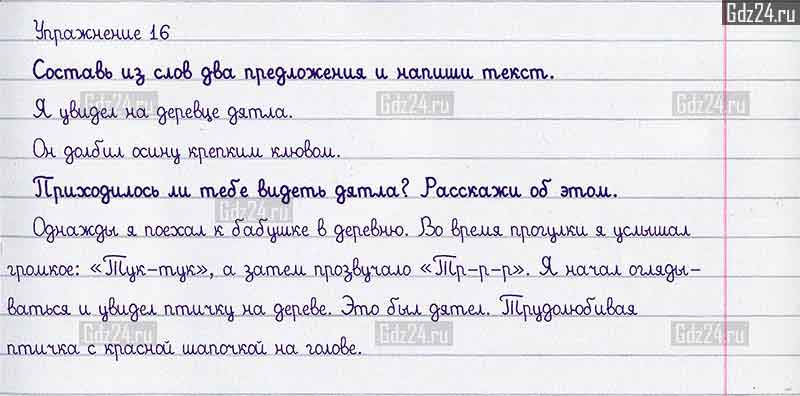 Gdz24.ru
Упражнение 16
Составь из слов два предложения и напиши текст.
Gdz24.ru Gdz24.ru Gdz24.ru
Я увидел на деревце дятла.
Он долбил осину крепким клювом.
Приходилось ли тебе видеть дятла? Расскажи об этом.
Gdz24.ru
Однажды я поехал к бабушке в деревню. Во время прогулки я услышал
громкое: «Тук-тук», а затем прозвучало «Тр-р-р». Я начал огляды-
ваться и увидел птичку на дереве. Это был дятел. Трудолюбивая
Gdz24.ru Gdz24.ru Gdz24.ru
птичка с красной шапочкой на голове.